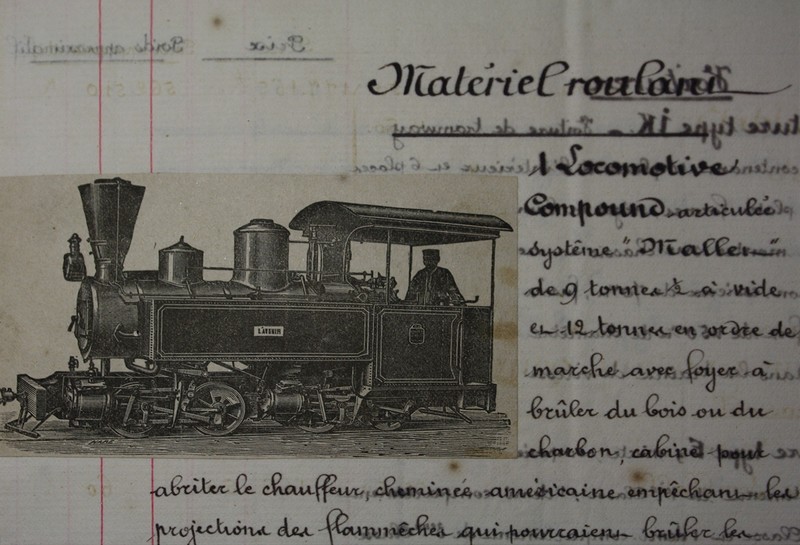 Poids approximatif Prix
Matériel roulant
1 Locomotive
Compound articulée
système "Mallet"
de 9 tonnes ½ à vide
et 12 tonnes en ordre de
marche avec foyer à
brûler du bois ou du
charbon, cabine pour
abriter le chauffeur, cheminée américaine empêchant les
projections des flammêches qui pourraient brûler les